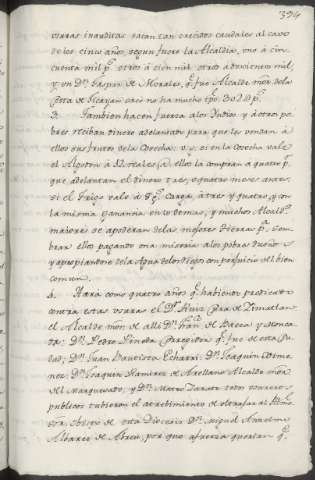 394
usuras inauditas sacan tan crecidos caudales al cavo
de los cinco años, segun fuere la Alcaldia, uno á cin-
cuenta mil pˢ otros á cien mil otros a doscientos mil,
y en Dⁿ Gaspar de Morales, qᵉ fue Alcalde mōr dela
de Xicayan caró no ha mucho tpō. 302D pˢ
3. Tambien hacen fuerza a los Yndios y á otros po-
bres reciban dinero adelantado para que les vendan á
ellos sus frutos de la Cosecha. v.g. si en la cosecha vale
el Algodon á 8 reales @. ellos la compran a quatro pʳ
que adelantan el dinero tres, ó quatro meses antes.
si el trigo vale á 8 pˢ Carga, á tres y quatro, y con
la misma ganancia en lo demas, y muchos Alcaldˢ
maiores se apoderan delas mejores tierras pᵃ sem-
brar ellos pagando una miseria alos pobres Dueños
y apropiandose dela Agua delos Riegos con perjuicio del bien
comun.
4. Hará como quatro años qᵉ habiendo predicado
contra estas usuras el Dʳ Ruiz Páx de Zimatlan
el Alcalde mōr de alli Dⁿ Franᶜᵒ de Baeza y Monca-
da: Dⁿ Pedro Pineda Corregidor qᵉ fue de esta Ciu-
dad; Dⁿ Juan Bautista Echarri: Dⁿ Joaquin
Dⁿ Joaquin Ramirez de Arellano Alcalde mōr
del Marquesado, y Dⁿ Mateo Zarate todos usureros
publicos tubieron el atrebimiento de ultrajar al
Sōr Obispo de esta Diocesis Dⁿ Miguel Anselmo
Albarez de Abreu, por que afuerza querian qᵉ